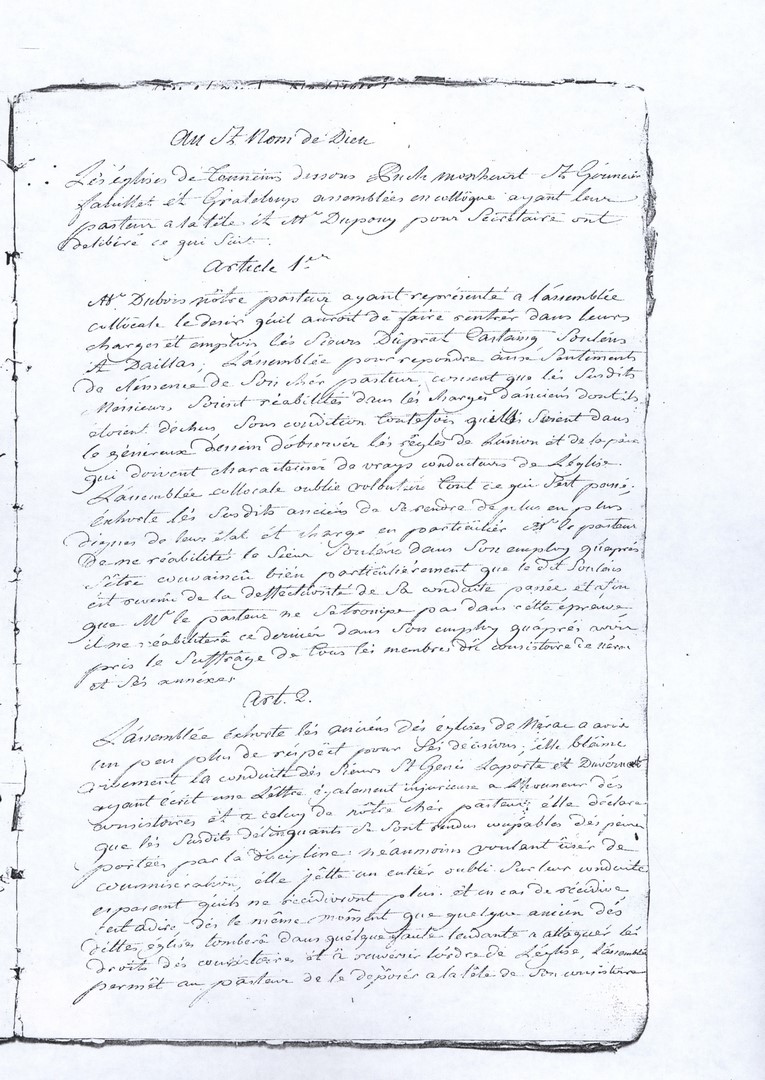 Au St Nom de Dieu
Les églises de Tonneins dessous Puch monheurt St Gourmes
fauillet et Grateloup assemblées en colloque ayant leur
pasteur a la tête et Mr Dupouy pour Secrétaire ont
delibéré ce qui Suit.
Article 1er
Mr Dubois nôtre pasteur ayant représenté a l'assemblée
collocale le desir qu'il auroit de faire rentrer dans leurs
charges et emplois lés Sieurs Duprat Castaing Soulens
& Daillas, L'assemblée pour repondre aux Sentiments
de clémence de Son chér pasteur, consent que lés Susdits
Messieurs Soient réabilités dans lés charges d'anciens dont ils
étoient déchus Sous condition toutefois qu'ils Soient dans
le généreux dessein d'observer lés régles de l'union et de la paix
qui doivent charactériser de vrays conducteurs de L'église.
L'assemblée collocale oublie tout ce qui S'est passé,
éxhorte lés Susdits anciens de Se rendre de plus en plus
dignes de leur état et charge en particuliér Mr le pasteur
De ne réabiliter le Sieur Soulens dans Son employ qu'aprés
S'être convaincû bien particuliérement que le dit Soulens
est revenu de la deffectivité de Sa conduite passée et afin
que Mr le pasteur ne Se trompe pas dans cétte épreuve
il ne réabilitera ce derniér dans Son employ qu'aprés avoir
pris le Suffrage de tous lés membres du consistoire de nérac
et Sés annéxes
Art. 2.
L'assemblée éxhorte lés anciens dés églises de Nérac a avoir
un peu plus de réspect pour Sés décisions, élle blâme
vivement la conduite dés Sieurs St Genés Laporte et Duvernet
ayant ecrit une Léttre également injurieuse a L'honneur dés
consistoires et a celuy de nôtre chér pasteur; élle déclare
que lés Susdits délinquants Se Sont rendus coupables dés peines
portées par la discipline: néanmoins voulant ûser de
commisération, élle jétte un entiér oubli Sur leur conduite
esperant qu'ils ne récidiveront plus. et en cas de récidive
c'est adire, dés le même moment que quelque ancien dés
dittes églises tombera dans quélque faute tendante a attaquer lés
droits dés consistoires et a renversér l'ordre de L'église, L'assemblée
permét au pasteur de le déposér a la tête de Son consistoire